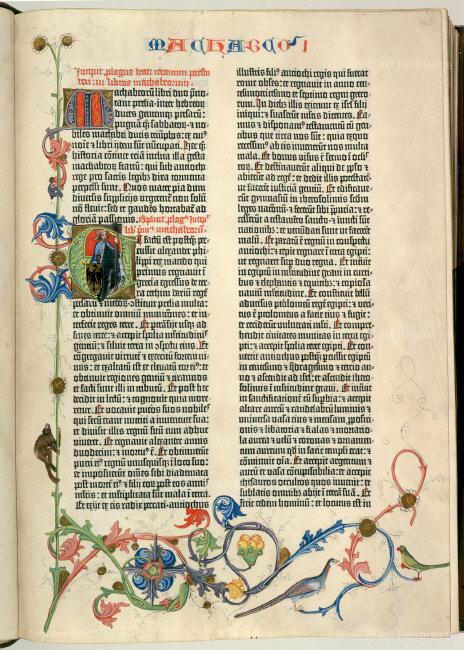 MACHABEOR I
Machabeorū libri duo p̄no⸗
tant prelia inter hebreorū
duces gentemq; persarū:
pugnā q̄ sabbatorū et no⸗
biles machabei ducis triūphos: ex cui⁹
noīe et libri idem sūt nūcupati. Hec q̄q;
historia cōtinet etiā inclita illa gesta
machabeorū fratrū: qui sub antiocho
rege pro sacris legibus dira tormenta
perpessi sunt. Quos mater pia dum
diversis suplicijs urgerent non solū
nō flevit: sed et gaudēs hortabat ad
gloriā passionis.
Et factū est postq̄ per⸗
cussit alexander phi⸗
lippi rex macedo qui
primus regnavit ī
grecia egressus de ter⸗
ra cethim dariū regē
persarū et medorū: cōstituit prelia multa:
et obtinuit omniū munitiones: et in⸗
terfecit reges terre. Et pertrāsijt usq; ad
fines terre: et accepit spolia multitudīs
gentiū: et siluit terra in cōspectu eius. Et
cōgregavit virtutē et exercitū fortem ni⸗
mis: et exaltatū est et elevatū cor ei⁹: et
obtinuit regiones gentiū et tirannos
et facti sunt illi in tributū. Et post hec
decidit in lectū: et cognovit quia more⸗
retur. Et vocavit pueros suos nobiles
qui secū erant nutriti a iuventute sua:
et divisit illis regnū suū cum adhuc
viveret. Et regnavit alexander annis
duodecim: et mortu⁹ ē. Et obtinuerūt
pueri ei⁹ regnū unusquisq; ī loco suo:
et imposuerūt oēs sibi diademata
post mortē ei⁹: et filij eoꝝ post eos annis
multis: et multiplicata sūt mala ī terra.
Et exijt ex eis radix peccati: antiochus
illustris filiꝰ antiochi regis qui fuerat
rome obses: et regnavit in anno cen⸗
tesimotricesimo et septimo regni greco⸗
rum. In dieb; illis exierunt ex isrl̄ filij
iniqui: et suaserūt multis dicentes. Ea⸗
mus et disponamꝰ testamentū cū gen⸗
tibus que circa nos sūt: quia ex quo
recessimꝰ ab eis invenerūt nos multa
mala. Et bonus visus ē sermo ī oclis
eoꝝ. Et destinaverūt aliqui de pplo: et
abierūt ad regē: et dedit illis potestatē
ut facerēt iusticiā gentiū. Et edificave⸗
rūt gymnasiū in iherosolimis scdm̄
leges nationū: et fecerūt sibi p̄pucia: et re⸗
cesserūt a testamento sancto: et iuncti sūt
nationib;: et venundati sunt ut facerēt
malū. Et paratū ē regnū in cōspectu
antiochi: et cepit regnare in terra egipti:
ut regnaret sup duo regna. Et intravit
in egiptū in multitudine gravi in curri⸗
bus et elephantis et equitib;: et copiosa
naviū multitudine. Et constituit bellū
adversus ptolomeū regē egipti: et veri⸗
tus ē ptolomeus a facie eius et fugit:
et ceciderūt vulnerati multi. Et compre⸗
hendit civitates munitas in terra egi⸗
pti: et accepit spolia terre egipti. Et con⸗
vertit anthiochus postq̄ percussit egiptū
in centesimo et quadragesimo et tercio an⸗
no: et ascendit ad isrl̄: et ascendit ihero⸗
solimis in multitudine gravi. Et intrāvit
in sanctificationē cū supbia: et accepit
altare aureū et candelabrū luminis et
universa vasa eius et mensam propositi⸗
onis et libatoria et fialas et mortario⸗
la aurea et velū et coronas et ornamen⸗
tum aureum qd̄ in facie templi erat: et
cōminuit oīa. Et accepit argentum et
aurū et vasa cōcupiscibilia: et accepit
thesauros occultos quos invenit: et
sublatis omnib; abijt ī terrā suā. Et
fecit cedem hominū: et locutus est in